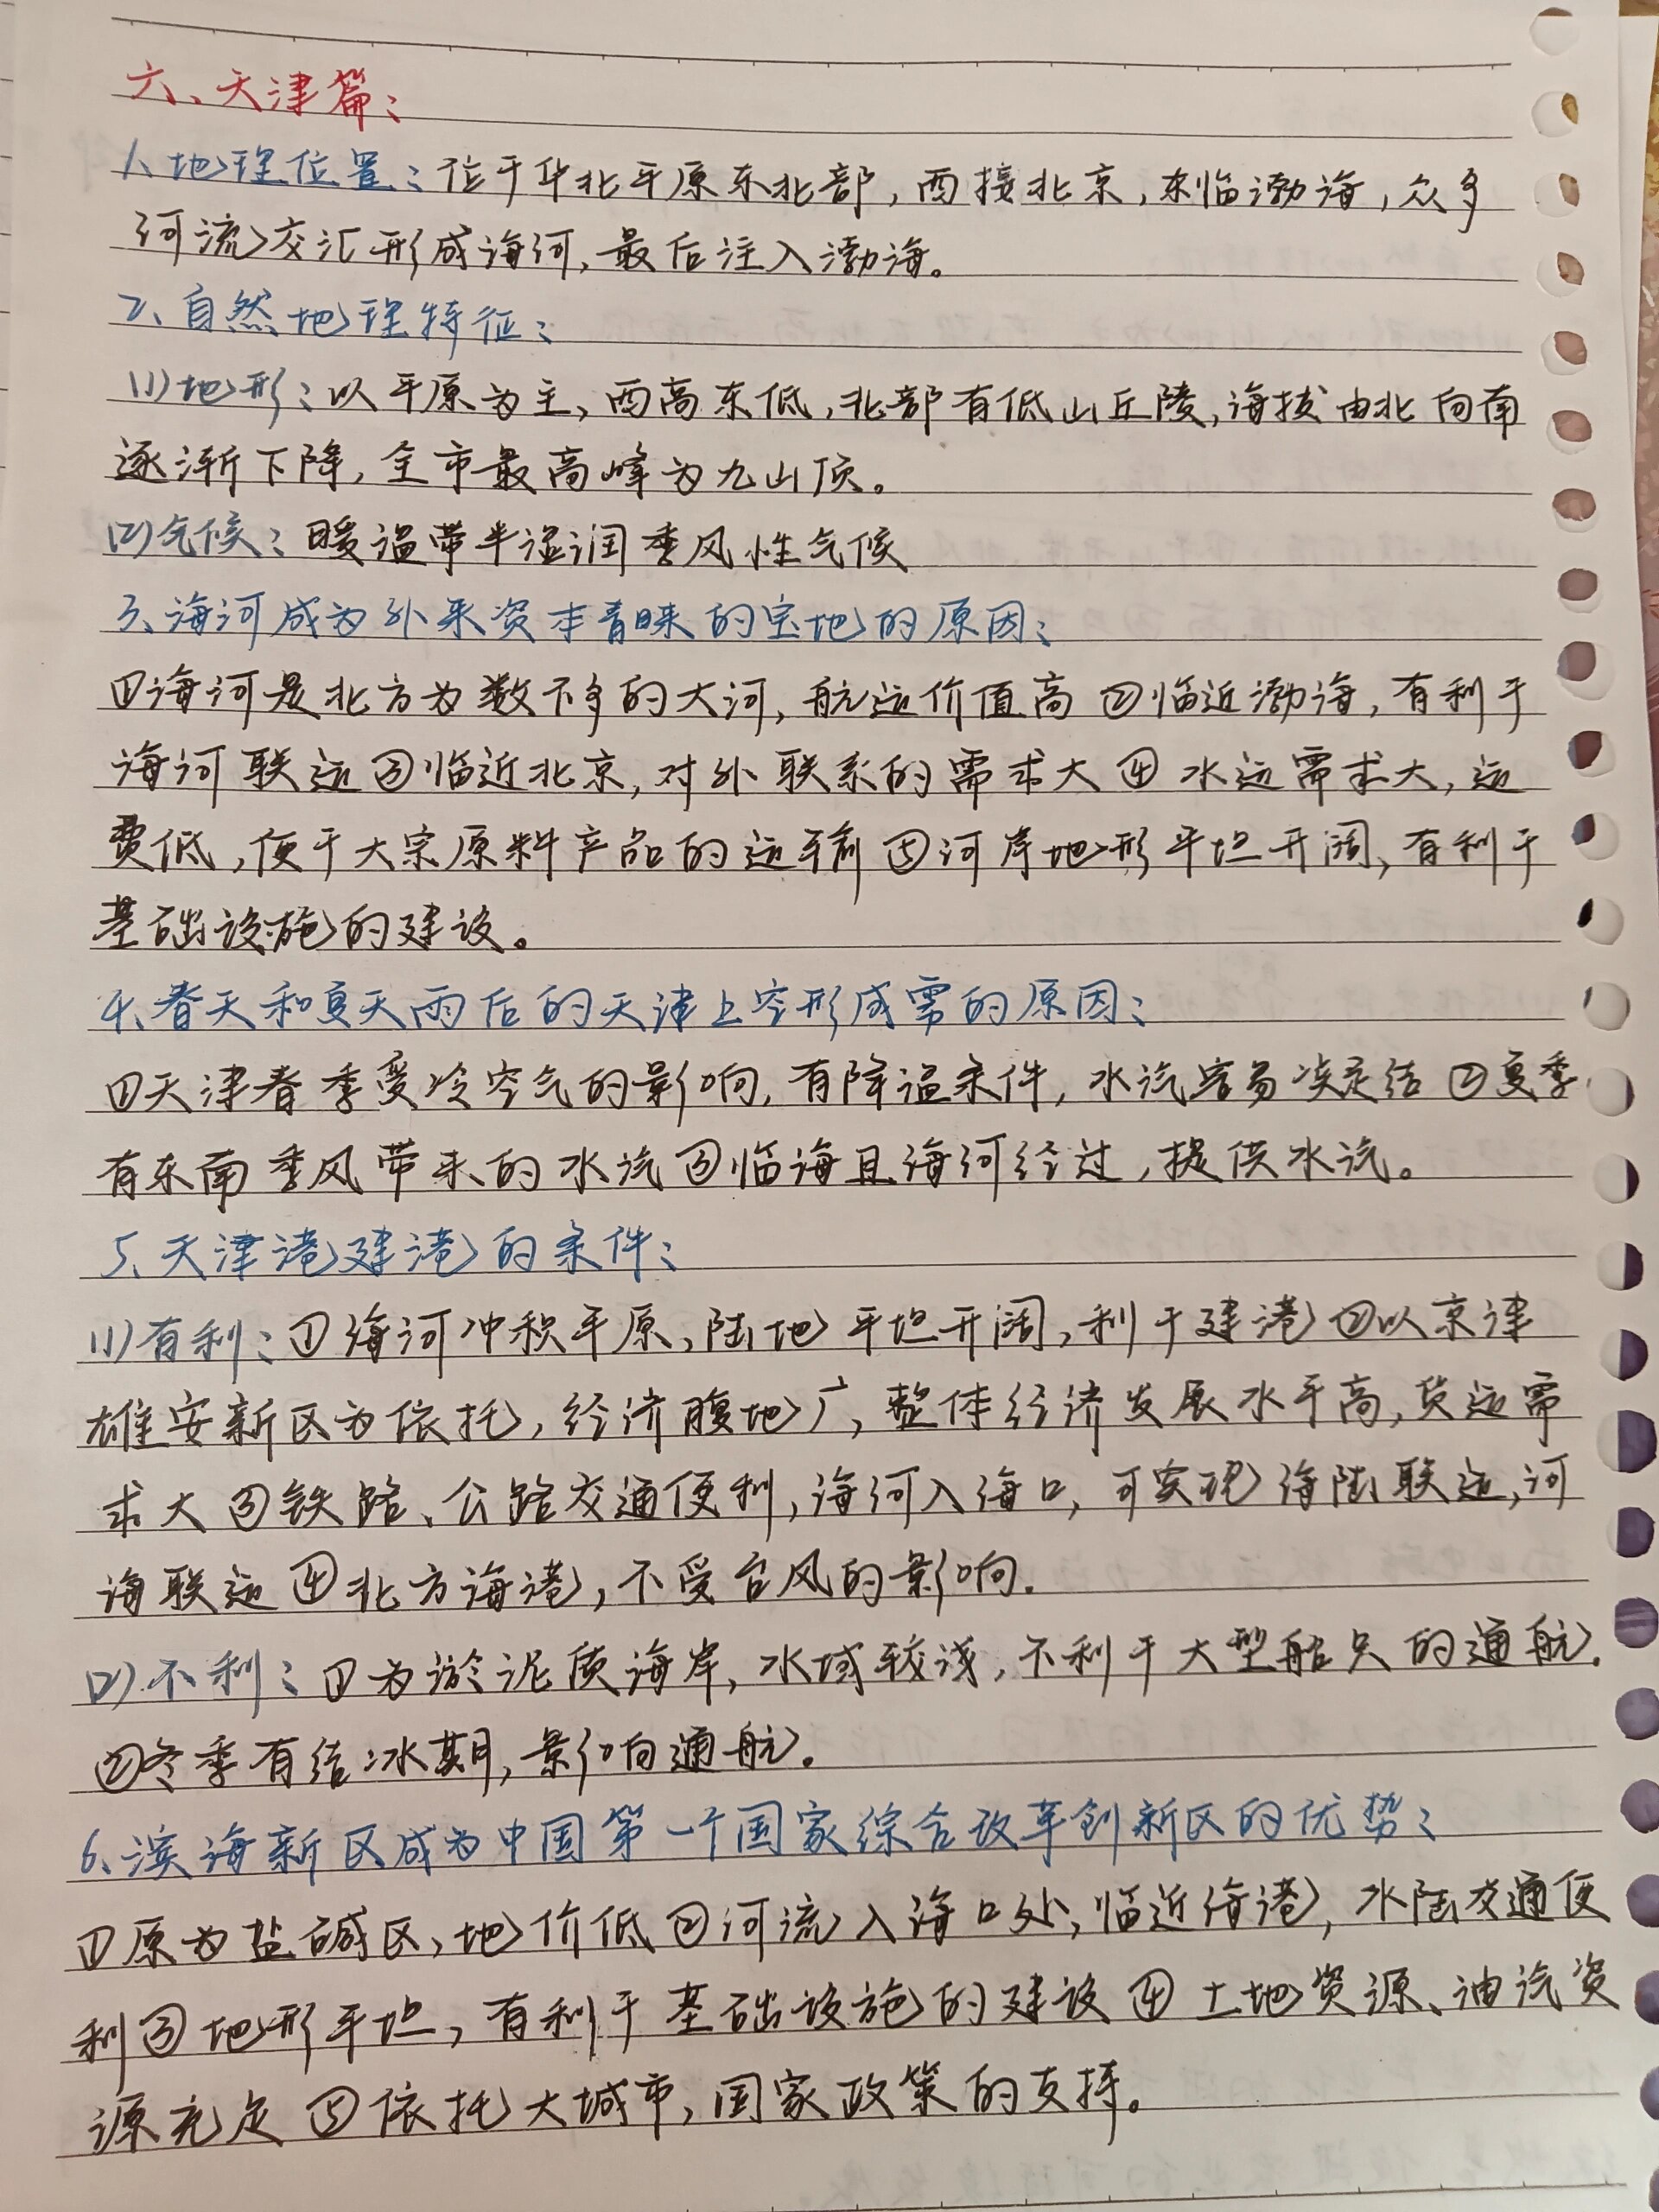 六、天津篇：
1、地理位置：位于华北平原东北部，西接北京，东临渤海，众多
河流交汇形成海河，最后注入渤海。
2、自然地理特征：
(1)地形：以平原为主，西高东低，北部有低山丘陵，海拔由北向南
逐渐下降，全市最高峰为九山顶。
(2)气候：暖温带半湿润季风性气候
3、海河成为外来资本青睐的宝地的原因：
①海河是北方为数不多的大河，航运价值高②临近渤海，有利于
海河联运③临近北京，对外联系的需求大④水运需求大，运
费低，便于大宗原料产品的运输⑤河岸地形平坦开阔，有利于
基础设施的建设。
4、春天和夏天雨后的天津上空形成雾的原因：
①天津春季受冷空气的影响，有降温条件，水汽容易凝结②夏季
有东南季风带来的水汽③临海且海河经过，提供水汽。
5、天津港建港的条件：
(1)有利：①海河冲积平原、陆地平坦开阔，利于建港②以京津
雄安新区为依托，经济腹地广，整体经济发展水平高，货运需
求大③铁路、公路交通便利，海河入海口，可实现海陆联运，河
海联运④北方海港，不受台风的影响.
(2)不利：①为淤泥质海岸，水域较浅，不利于大型船只的通航.
②冬季有结冰期，影响通航。
6、滨海新区成为中国第一个国家综合改革创新区的优势：
①原为盐碱区，地价低②河流入海口处，临近海港，水陆交通便
利③地形平坦，有利于基础设施的建设④土地资源、油汽资
源充足⑤依托大城市，国家政策的支持。